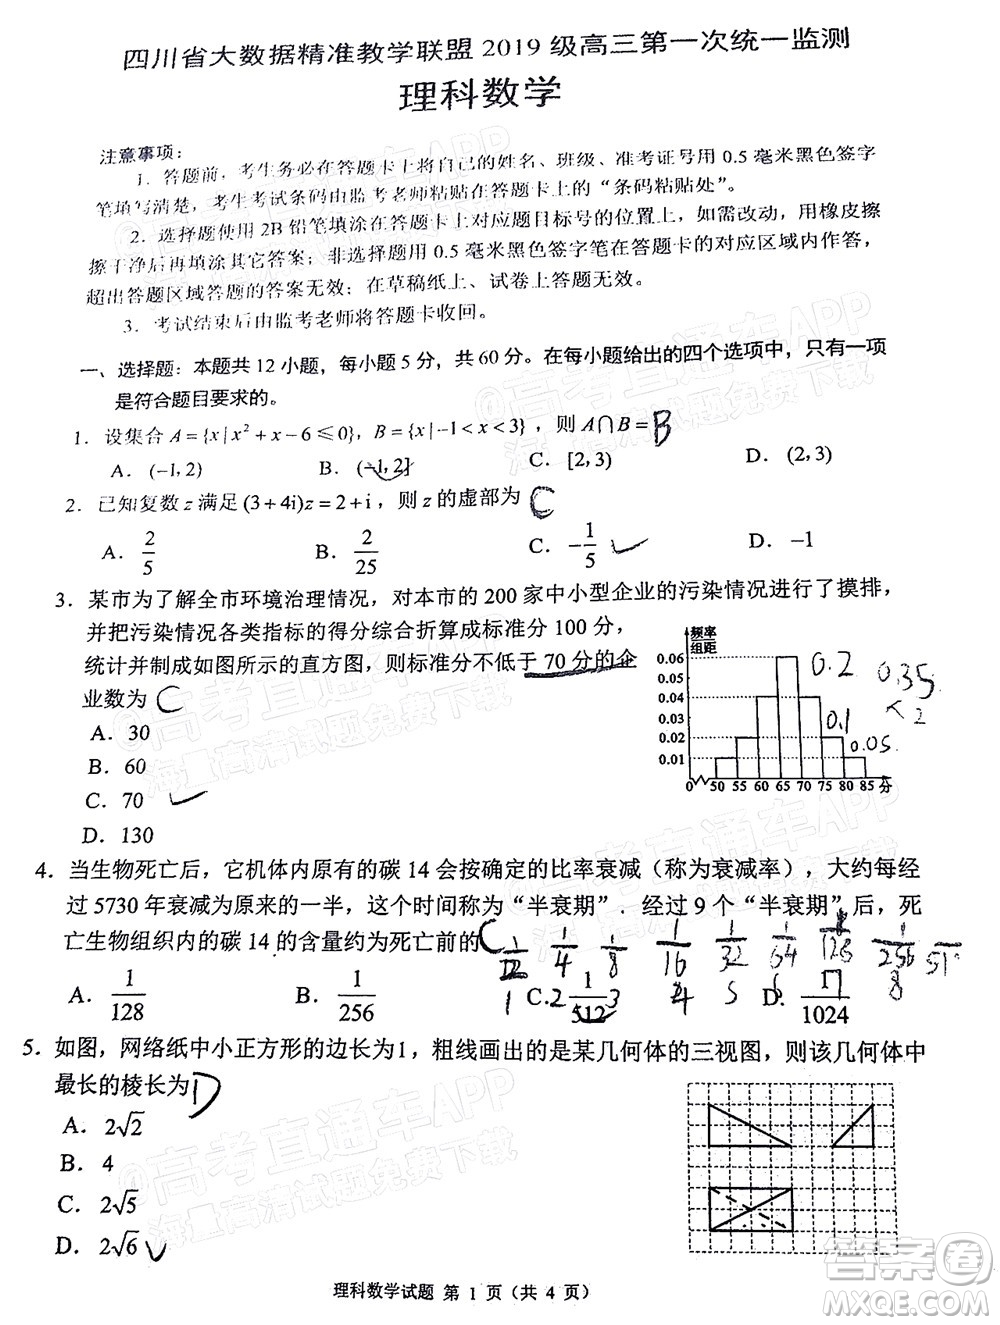 四川省大数据精准教学联盟 2019 级高三第一次统一监测
理科数学
注意事项：
1．答题前，考生务必在答题卡上将自己的姓名、班级、准考证号用 0.5 毫米黑色签字
笔填写清楚，考生考试条码由监考老师粘贴在答题卡上的“条码粘贴处”。
2．选择题使用 2B 铅笔填涂在答题卡上对应题目标号的位置上，如需改动，用橡皮擦
擦干净后再填涂其它答案；非选择题用 0.5 毫米黑色签字笔在答题卡的对应区域内作答，
超出答题区域答题的答案无效；在草稿纸上、试卷上答题无效。
3．考试结束后由监考老师将答题卡收回。
一、选择题：本题共 12 小题，每小题 5 分，共 60 分。在每小题给出的四个选项中，只有一项
是符合题目要求的。
1．设集合 A={x|x²+x-6≤0}，B={x|-1<x<3}，则 A∩B= B
A．(-1,2) B．(-1,2] C．[2,3) D．(2,3)
2．已知复数 z 满足 (3+4i)z=2+i，则 z 的虚部为 C
A．2/5 B．2/25 C．-1/5 D．-1
3．某市为了解全市环境治理情况，对本市的 200 家中小型企业的污染情况进行了摸排，
并把污染情况各类指标的得分综合折算成标准分 100 分，
统计并制成如图所示的直方图，则标准分不低于 70 分的企
业数为 C
A．30
B．60
C．70
D．130
频率/组距
0.06
0.05
0.04
0.03
0.02
0.01
0 50 55 60 65 70 75 80 85 分
0.2 0.35
×2
0.1
0.05
4．当生物死亡后，它机体内原有的碳 14 会按确定的比率衰减（称为衰减率），大约每经
过 5730 年衰减为原来的一半，这个时间称为“半衰期”．经过 9 个“半衰期”后，死
亡生物组织内的碳 14 的含量约为死亡前的 C
1/4 1/8 1/16 1/32 1/64 1/128 1/256
A．1/128 B．1/256 C．1/512 D．1/1024
1 2 3 4 5 6 7 8
5．如图，网络纸中小正方形的边长为1，粗线画出的是某几何体的三视图，则该几何体中
最长的棱长为 D
A．2√2
B．4
C．2√5
D．2√6
理科数学试题 第 1 页（共 4 页）
@高考直通车APP
海量高清试题免费下载
@高考直通车APP
海量高清试题免费下载
答案卷
MXQE.COM